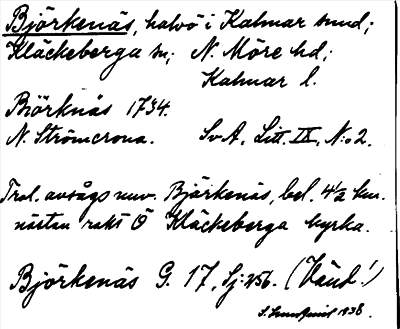 Björkenäs, halvö i Kalmar sund;
Kläckeberga sn; N. Möre hd;
Kalmar l.
Biörknäs 1734.
N. Strömcrona. SvA, Litt. IX, N:o 2.
Trol. avsågs nuv. Björkenäs, bel. 4 1/2 km.
nästan rakt Ö Kläckeberga kyrka.
Björkenäs G. 17, Sj: 256. (Vänd!)
S. Lundquist 1938.